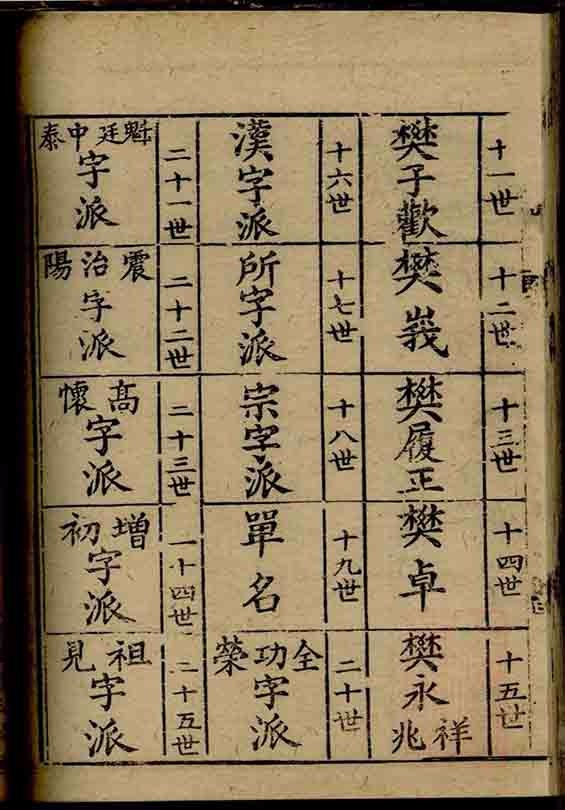 十一世
樊子歡
十二世
樊峩
十三世
樊履正
十四世
樊卓
十五世
樊永
祥兆
十六世
漢字派
十七世
所字派
十八世
宗字派
十九世
單名
二十世
全功榮
字派
二十一世
魁廷中泰
字派
二十二世
震治陽
字派
二十三世
高懷
字派
二十四世
增初
字派
二十五世
祖見
字派